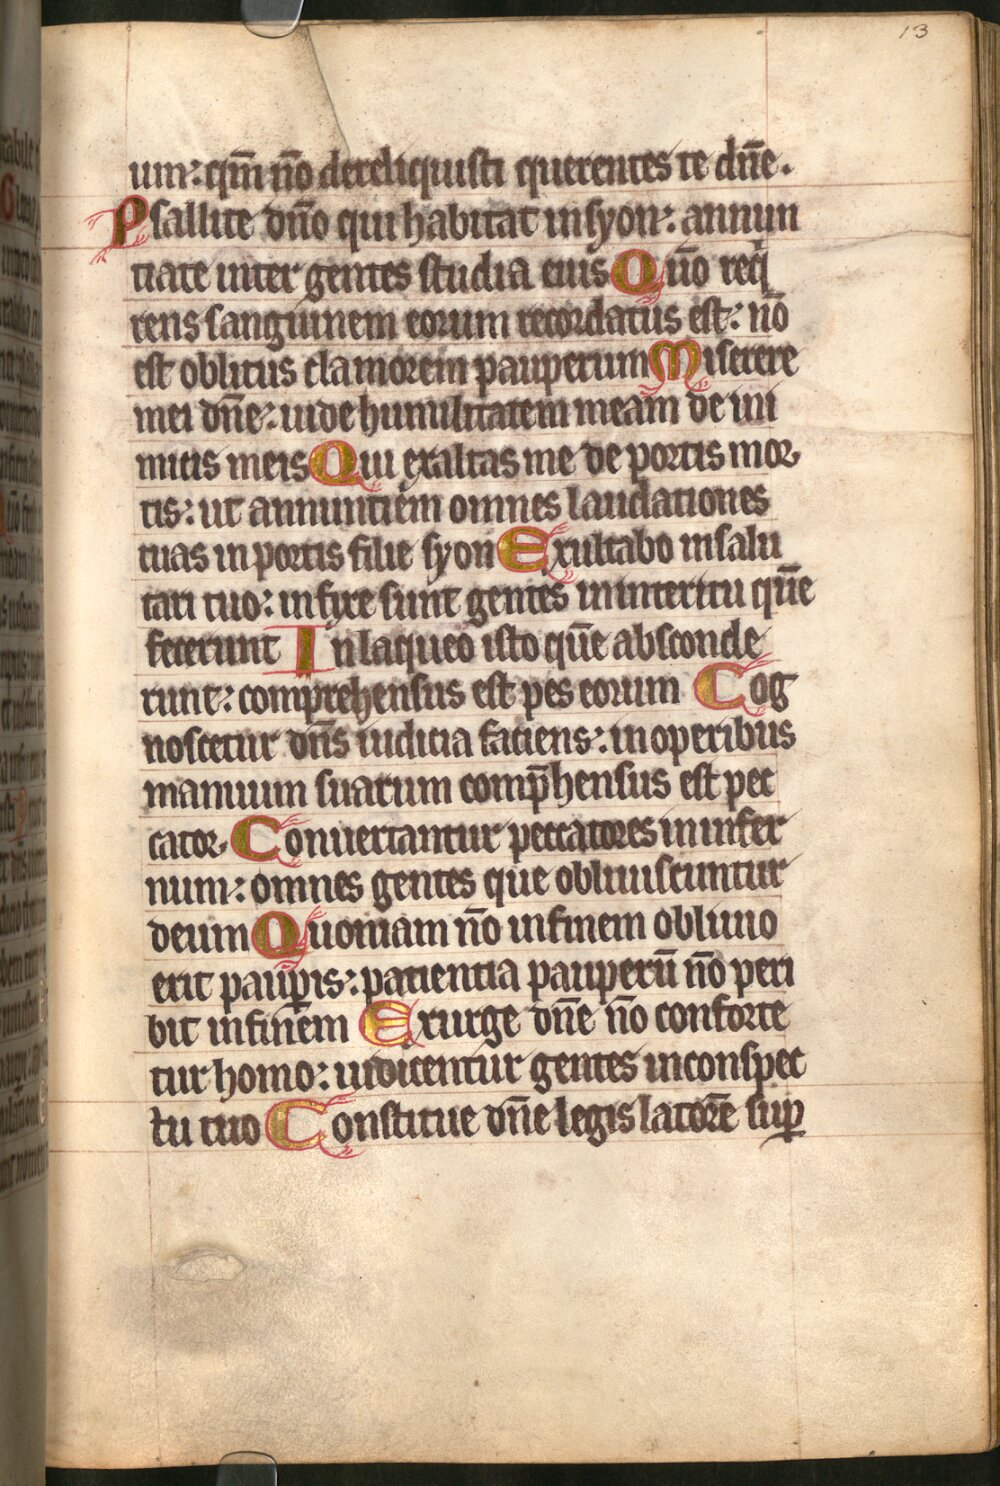 13
um: qm̄ nō dereliquisti querentes te dn̄e.
Psallite dn̄o qui habitat in syon: annun
tiate inter gentes studia eius Qm̄o req̇
rens sanguinem eorum recordatus est: nō
est oblitus clamorem pauperum Miserere
mei dn̄e: uide humilitatem meam de ini
micis meis Qui exaltas me de portis mor
tis: ut annuntiem omnes laudationes
tuas in portis filie syon Exultabo in salu
tari tuo: infixe sunt gentes in interitu quē
fecerunt In laqueo isto quē absconde
runt: comprehensus est pes eorum Cog
noscetur dn̄s iudicia faciens: in operibus
manuum suarum comp̄hensus est pec
cator. Conuertantur peccatores in infer
num: omnes gentes que obliuiscuntur
deum Quoniam nō in finem obliuio
erit paup̱is: patientia pauperū nō peri
bit in finem Exurge dn̄e nō conforte
tur homo: iudicentur gentes in conspec
tu tuo Constitue dn̄e legis latorē sup̱